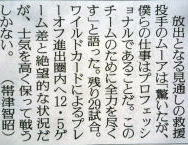 放出となる見通しの救援
投手のムーアは「驚いたが、
僕らの仕事はプロフェッシ
ョナルであることだ。この
チームのために全力を尽く
す」と語った。残り29試合。
ワイルドカードによるプレ
ーオフ進出圏内へ12・5ゲ
ーム差と絶望的な状況だ
が、士気を高く保って戦う
しかない。（帯津智昭）